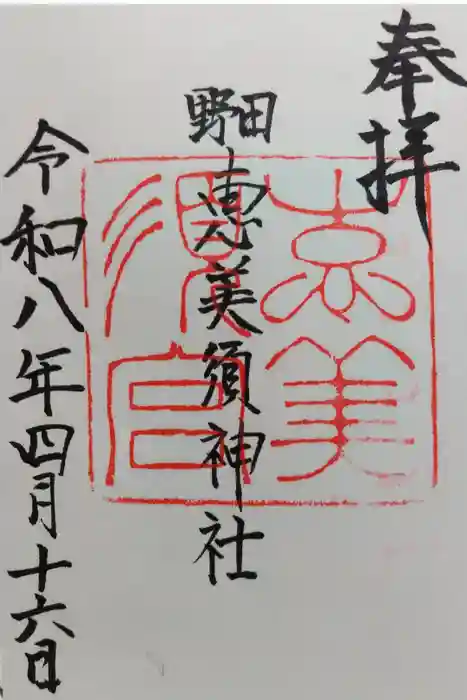 奉拝
野田
恵美須神社
恵美須宮
令和八年四月十六日